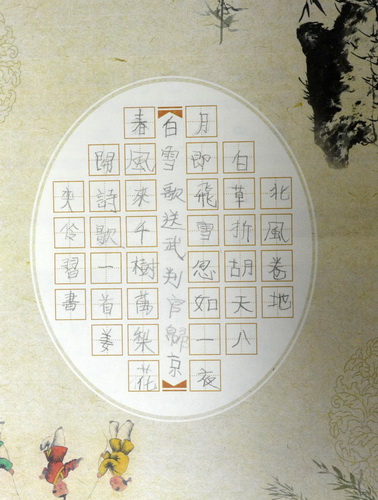 北風卷地
白草折胡天八
月即飛雪忽如一夜
白雪歌送武判官歸京
春風來千樹萬梨花
開詩歌一首姜
伶習書